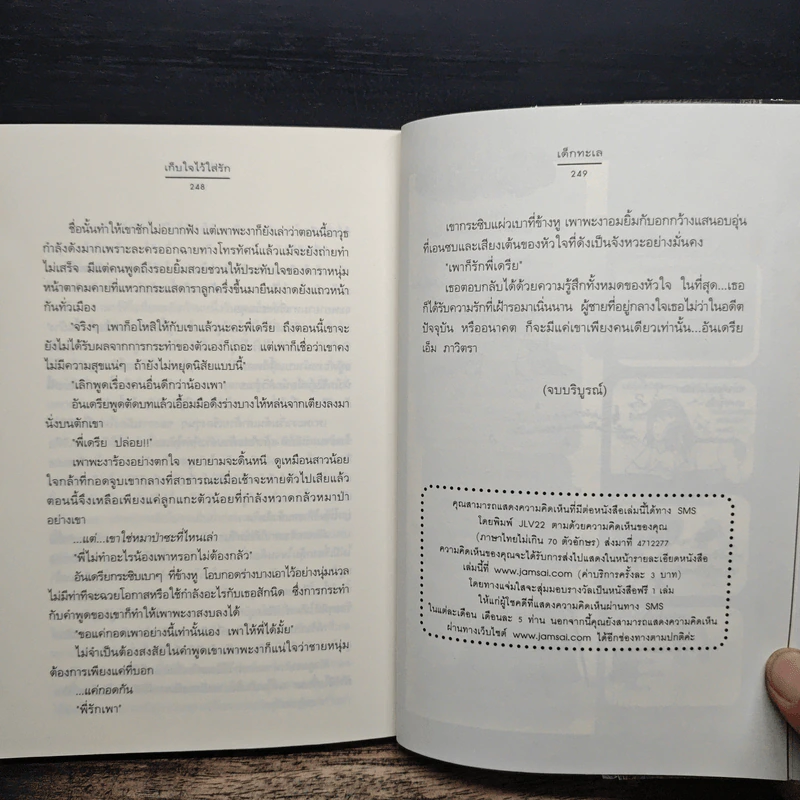 เก็บใจไว้ใส่รัก
248
ชื่อนั้นทำให้เขาชักไม่อยากฟัง แต่เพาพะงาก็ยังเล่าว่าตอนนี้อาวุธ
กำลังดังมากเพราะละครออกฉายทางโทรทัศน์แล้วแม้จะยังถ่ายทำ
ไม่เสร็จ มีแต่คนพูดถึงรอยยิ้มสวยชวนให้ประทับใจของดาราหนุ่ม
หน้าตาคมคายที่แหวกกระแสดาราลูกครึ่งขึ้นมายืนผงาดยังแถวหน้า
กันทั่วเมือง
"จริงๆ เพาก็อโหสิให้กับเขาแล้วนะคะพี่เดรีย ถึงตอนนี้เขาจะ
ยังไม่ได้รับผลจากการกระทำของตัวเองก็เถอะ แต่เพาก็เชื่อว่าเขาคง
ไม่มีความสุขแน่ๆ ถ้ายังไม่หยุดนิสัยแบบนี้"
"เลิกพูดเรื่องคนอื่นดีกว่าน้องเพา"
อันเดรียพูดตัดบทแล้วเอื้อมมือดึงร่างบางให้หล่นจากเตียงลงมา
นั่งบนตักเขา
"พี่เดรีย ปล่อย!!"
เพาพะงาร้องอย่างตกใจ พยายามจะดิ้นหนี ดูเหมือนสาวน้อย
ใจกล้าที่กอดจูบเขากลางที่สาธารณะเมื่อเช้าจะหายตัวไปเสียแล้ว
ตอนนี้จึงเหลือเพียงแค่ลูกแกะตัวน้อยที่กำลังหวาดกลัวหมาป่า
อย่างเขา
...แต่...เขาใช่หมาป่าซะที่ไหนเล่า
"พี่ไม่ทำอะไรน้องเพาหรอกไม่ต้องกลัว"
อันเดรียกระซิบเบาๆ ที่ข้างหู โอบกอดร่างบางเอาไว้อย่างนุ่มนวล
ไม่มีท่าทีจะฉวยโอกาสหรือใช้กำลังอะไรกับเธอสักนิด ซึ่งการกระทำ
กับคำพูดของเขาก็ทำให้เพาพะงาสงบลงได้
"ขอแค่กอดเพาอย่างนี้เท่านั้นเอง เพาให้พี่ได้มั้ย"
ไม่จำเป็นต้องสงสัยในคำพูดเขาเพาพะงาก็แน่ใจว่าชายหนุ่ม
ต้องการเพียงแค่ที่บอก
...แค่กอดกัน
"พี่รักเพา"
เด็กทะเล
249
เขากระซิบแผ่วเบาที่ข้างหู เพาพะงาอมยิ้มกับอกกว้างแสนอบอุ่น
ที่เอนซบและเสียงเต้นของหัวใจที่ดังเป็นจังหวะอย่างมั่นคง
"เพาก็รักพี่เดรีย"
เธอตอบกลับได้ด้วยความรู้สึกทั้งหมดของหัวใจ ในที่สุด...เธอ
ก็ได้รับความรักที่เฝ้ารอมาเนิ่นนาน ผู้ชายที่อยู่กลางใจเธอไม่ว่าในอดีต
ปัจจุบัน หรืออนาคต ก็จะมีแค่เขาเพียงคนเดียวเท่านั้น...อันเดรีย
เอ็ม ภาวิตรา
(จบบริบูรณ์)
คุณสามารถแสดงความคิดเห็นที่มีต่อหนังสือเล่มนี้ได้ทาง SMS
โดยพิมพ์ JLV22 ตามด้วยความคิดเห็นของคุณ
(ภาษาไทยไม่เกิน 70 ตัวอักษร) ส่งมาที่ 4712277
ความคิดเห็นของคุณจะได้รับการส่งไปแสดงในหน้ารายละเอียดหนังสือ
เล่มนี้ที่ www.jamsai.com (ค่าบริการครั้งละ 3 บาท)
โดยทางแจ่มใสจะสุ่มมอบรางวัลเป็นหนังสือฟรี 1 เล่ม
ให้แก่ผู้โชคดีที่แสดงความคิดเห็นผ่านทาง SMS
ในแต่ละเดือน เดือนละ 5 ท่าน นอกจากนี้คุณยังสามารถแสดงความคิดเห็น
ผ่านทางเว็บไซต์ www.jamsai.com ได้อีกช่องทางตามปกติค่ะ